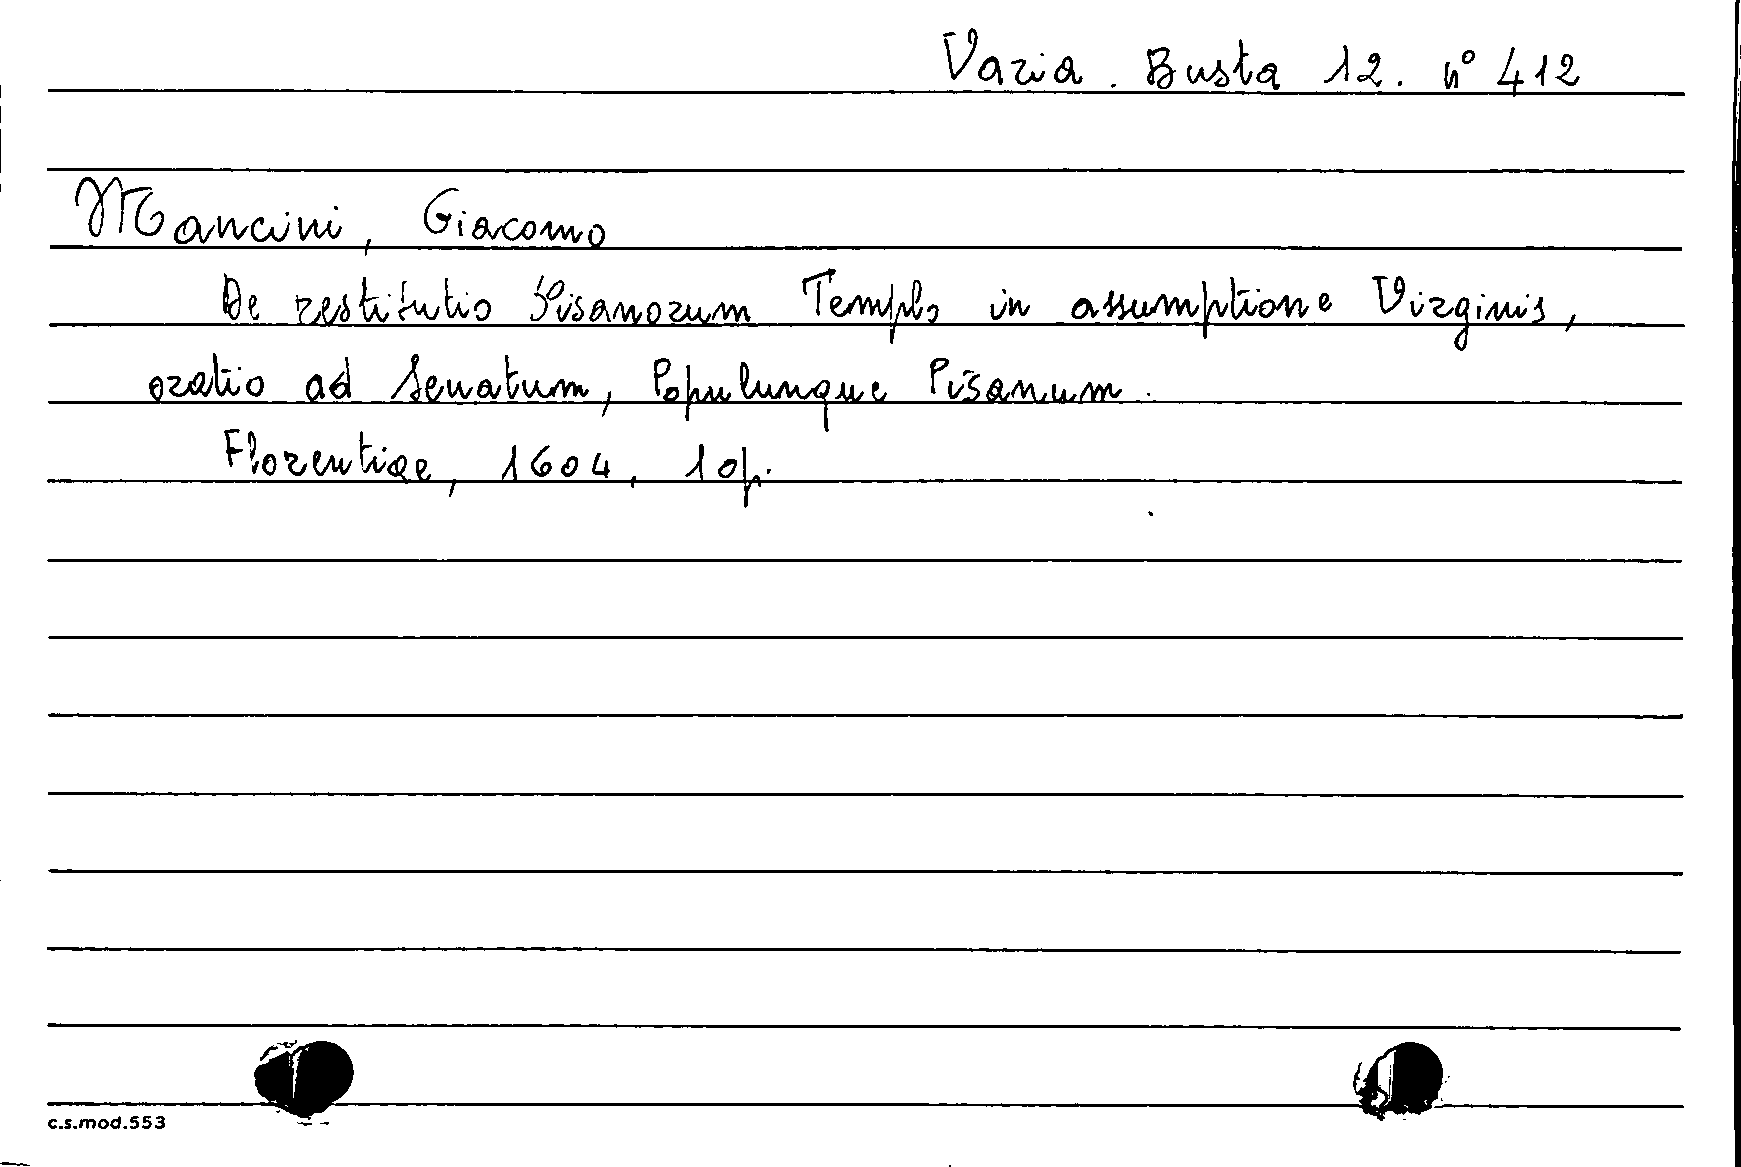 Varia. Busta 12. n° 412
Mancini, Giacomo
De restitutio Pisanorum Templo in assumptione Virginis,
oratio ad Senatum, Populunque Pisanum.
Florentiae, 1604, 10p.
c.s.mod.553